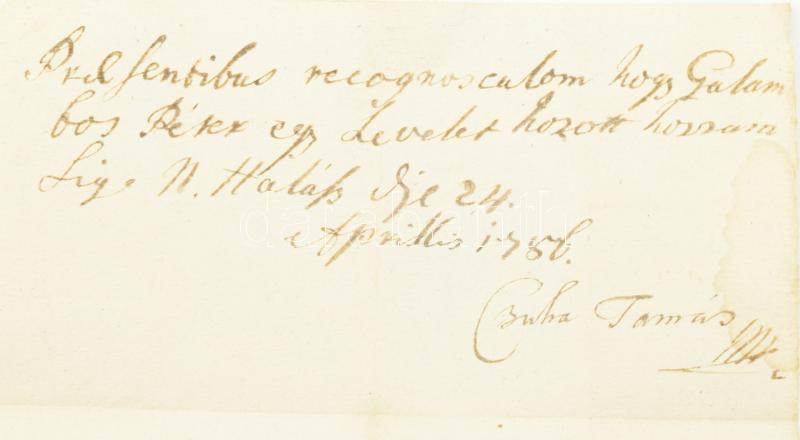 Præsentibus recognoscalom hogy Galam
bos Péter egy Levelet hozott hozzam
Sig. N. Halász die 24.
Aprillis 1786.
Csuha Tamás